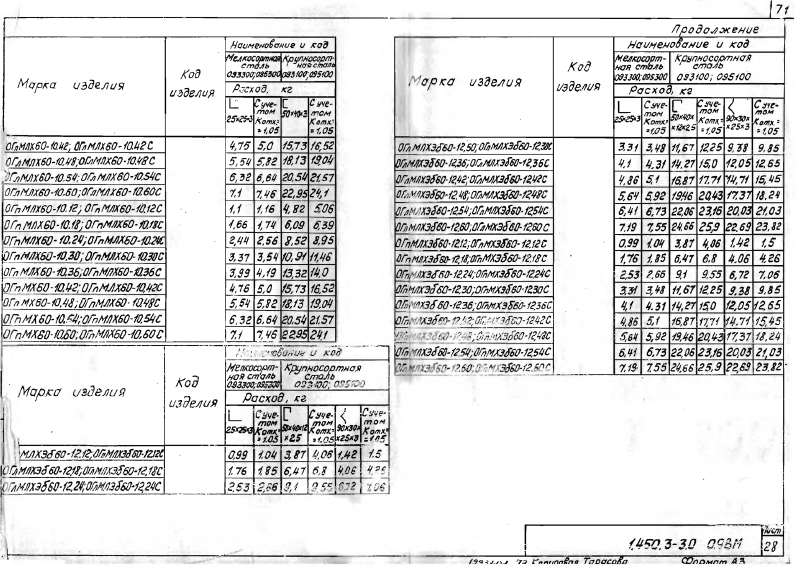 71
Наименование и код
Мелкосортная сталь 093300; 095300
Крупносортная сталь 093100; 095100
Марка изделия
Код изделия
Расход, кг
25×25×3
С учетом Котх.=1,05
50×40×3
С учетом Котх.=1,05
ОГпМЛХ60-10.42; ОГпМЛХ60-10.42С 4,75 5,0 15,73 16,52
ОГпМЛХ60-10.48; ОГпМЛХ60-10.48С 5,54 5,82 18,13 19,04
ОГпМЛХ60-10.54; ОГпМЛХ60-10.54С 6,32 6,64 20,54 21,57
ОГпМЛХ60-10.60; ОГпМЛХ60-10.60С 7,1 7,46 22,95 24,1
ОГпМЛХ60-10.12; ОГпМЛХ60-10.12С 1,1 1,16 4,82 5,06
ОГпМЛХ60-10.18; ОГпМЛХ60-10.18С 1,66 1,74 6,09 6,39
ОГпМЛХ60-10.24; ОГпМЛХ60-10.24С 2,44 2,56 8,52 8,95
ОГпМЛХ60-10.30; ОГпМЛХ60-10.30С 3,37 3,54 10,91 11,46
ОГпМЛХ60-10.36; ОГпМЛХ60-10.36С 3,99 4,19 13,32 14,0
ОГпМХ60-10.42; ОГпМЛХ60-10.42С 4,76 5,0 15,73 16,52
ОГпМХ60-10.48; ОГпМЛХ60-10.48С 5,54 5,82 18,13 19,04
ОГпМХ60-10.54; ОГпМЛХ60-10.54С 6,32 6,64 20,54 21,57
ОГпМХ60-10.60; ОГпМЛХ60-10.60С 7,1 7,46 22,95 24,1
Наименование и код
Мелкосортная сталь 093300; 095300
Крупносортная сталь 093100; 095100
Марка изделия
Код изделия
Расход, кг
25×25×3
С учетом Котх.=1,05
50×40×12×2,5
С учетом Котх.=1,05
90×30×25×3
С учетом Котх.=1,05
МЛХЭб60-12.12; ОГпМЛХЭб60-12.12С 0,99 1,04 3,87 4,06 1,42 1.5
ОГпМЛХЭб60-12.18; ОГпМЛХЭб60-12.18С 1,76 1,85 6,47 6,8 4,06 4,26
ОГпМЛХЭб60-12.24; ОГпМЛЭб60-12.24С 2,53 2,66 9,1 9,55 6,72 7,06
Продолжение
Наименование и код
Мелкосортная сталь 093300; 095300
Крупносортная сталь 093100; 095100
Марка изделия
Код изделия
Расход, кг
25×25×3
С учетом Котх.=1,05
50×40××12×2,5
С учетом Котх.=1,05
90×30××25×3
С учетом Котх.=1,05
ОГпМЛХЭб60-12.30; ОГпМЛХЭб60-12.30С 3,31 3,48 11,67 12,25 9,38 9.85
ОГпМЛХЭб60-12.36; ОГпМЛХЭб60-12.36С 4,1 4,31 14,27 15,0 12,05 12,65
ОГпМЛХЭб60-12.42; ОГпМЛХЭб60-12.42С 4,86 5,1 16,87 17,71 14,71 15,45
ОГпМЛХЭб60-12.48; ОГпМЛХЭб60-12.48С 5,64 5,92 19,46 20,43 17,37 18,24
ОГпМЛХЭб60-12.54; ОГпМЛХЭб60-12.54С 6,41 6,73 22,06 23,16 20,03 21,03
ОГпМЛХЭб60-12.60; ОГпМЛХЭб60-12.60С 7,19 7,55 24,66 25,9 22,69 23,82
ОГпМЛХЭб60-12.12; ОГпМХЭб60-12.12С 0,99 1.04 3,87 4,06 1,42 1.5
ОГпМЛХЭб60-12.18; ОГпМХЭб60-12.18С 1,76 1,85 6,47 6,8 4.06 4,26
ОГпМЛХЭб60-12.24; ОГпМЛХЭб60-12.24С 2,53 2,66 9,1 9,55 6,72 7,06
ОГпМЛХЭб60-12.30; ОГпМХЭб60-12.30С 3,31 3,48 11,67 12,25 9,38 9,85
ОГпМЛХЭб60-12.36; ОГпМХЭб60-12.36С 4,1 4.31 14,27 15,0 12,05 12,65
ОГпМЛХЭб60-12.42; ОГпМХЭб60-12.42С 4,86 5,1 16,87 17,71 14,71 15,45
ОГпМЛХЭб60-12.48; ОГпМХЭб60-12.48С 5,64 5,92 19,46 20,43 17,37 18.24
ОГпМЛХЭб60-12.54; ОГпМХЭб60-12.54С 6,41 6,73 22,06 23,16 20,03 21,03
ОГпМЛХЭб60-12.60; ОГпМХЭб60-12.60С 7,19 7,55 24,66 25,9 22,69 23,82
1.450.3-3.0 09ВМ
Лист
28
Копировал Тарасова
Формат А3